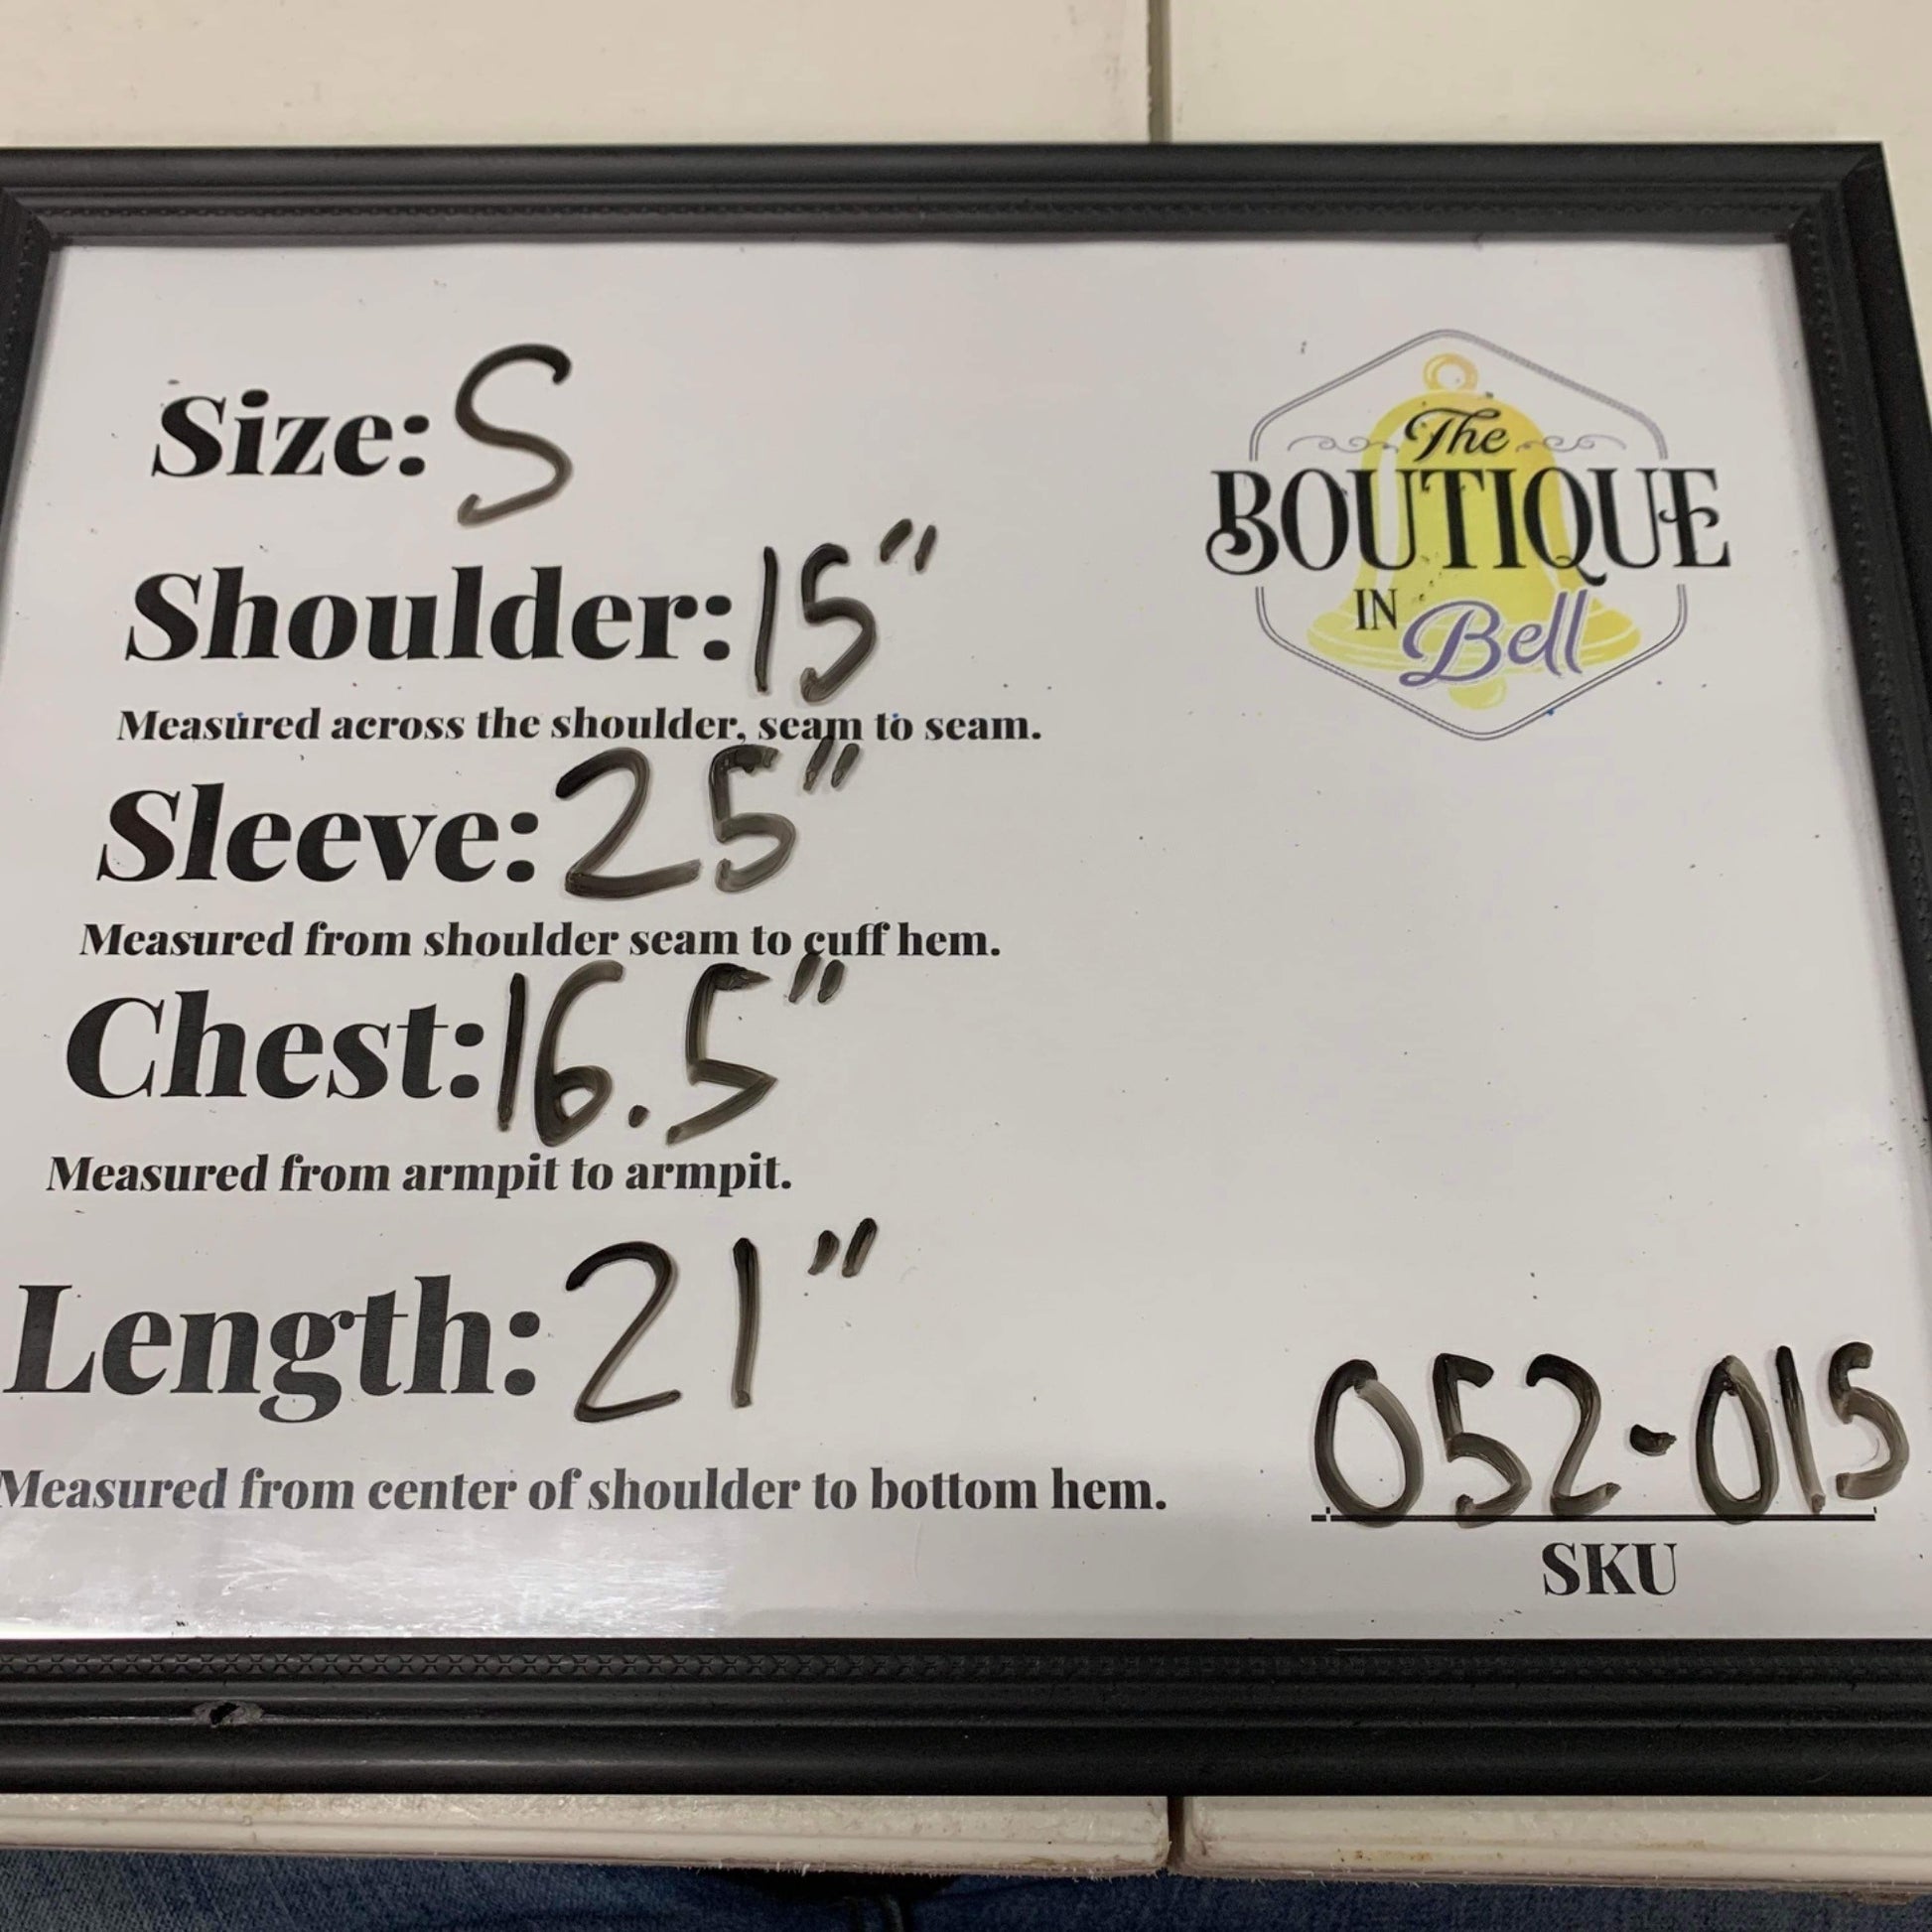 Size: S
The
BOUTIQUE
IN Bell
Shoulder: 15"
Measured across the shoulder, seam to seam.
Sleeve: 25"
Measured from shoulder seam to cuff hem.
Chest: 16.5"
Measured from armpit to armpit.
Length: 21"
Measured from center of shoulder to bottom hem.
052-015
SKU